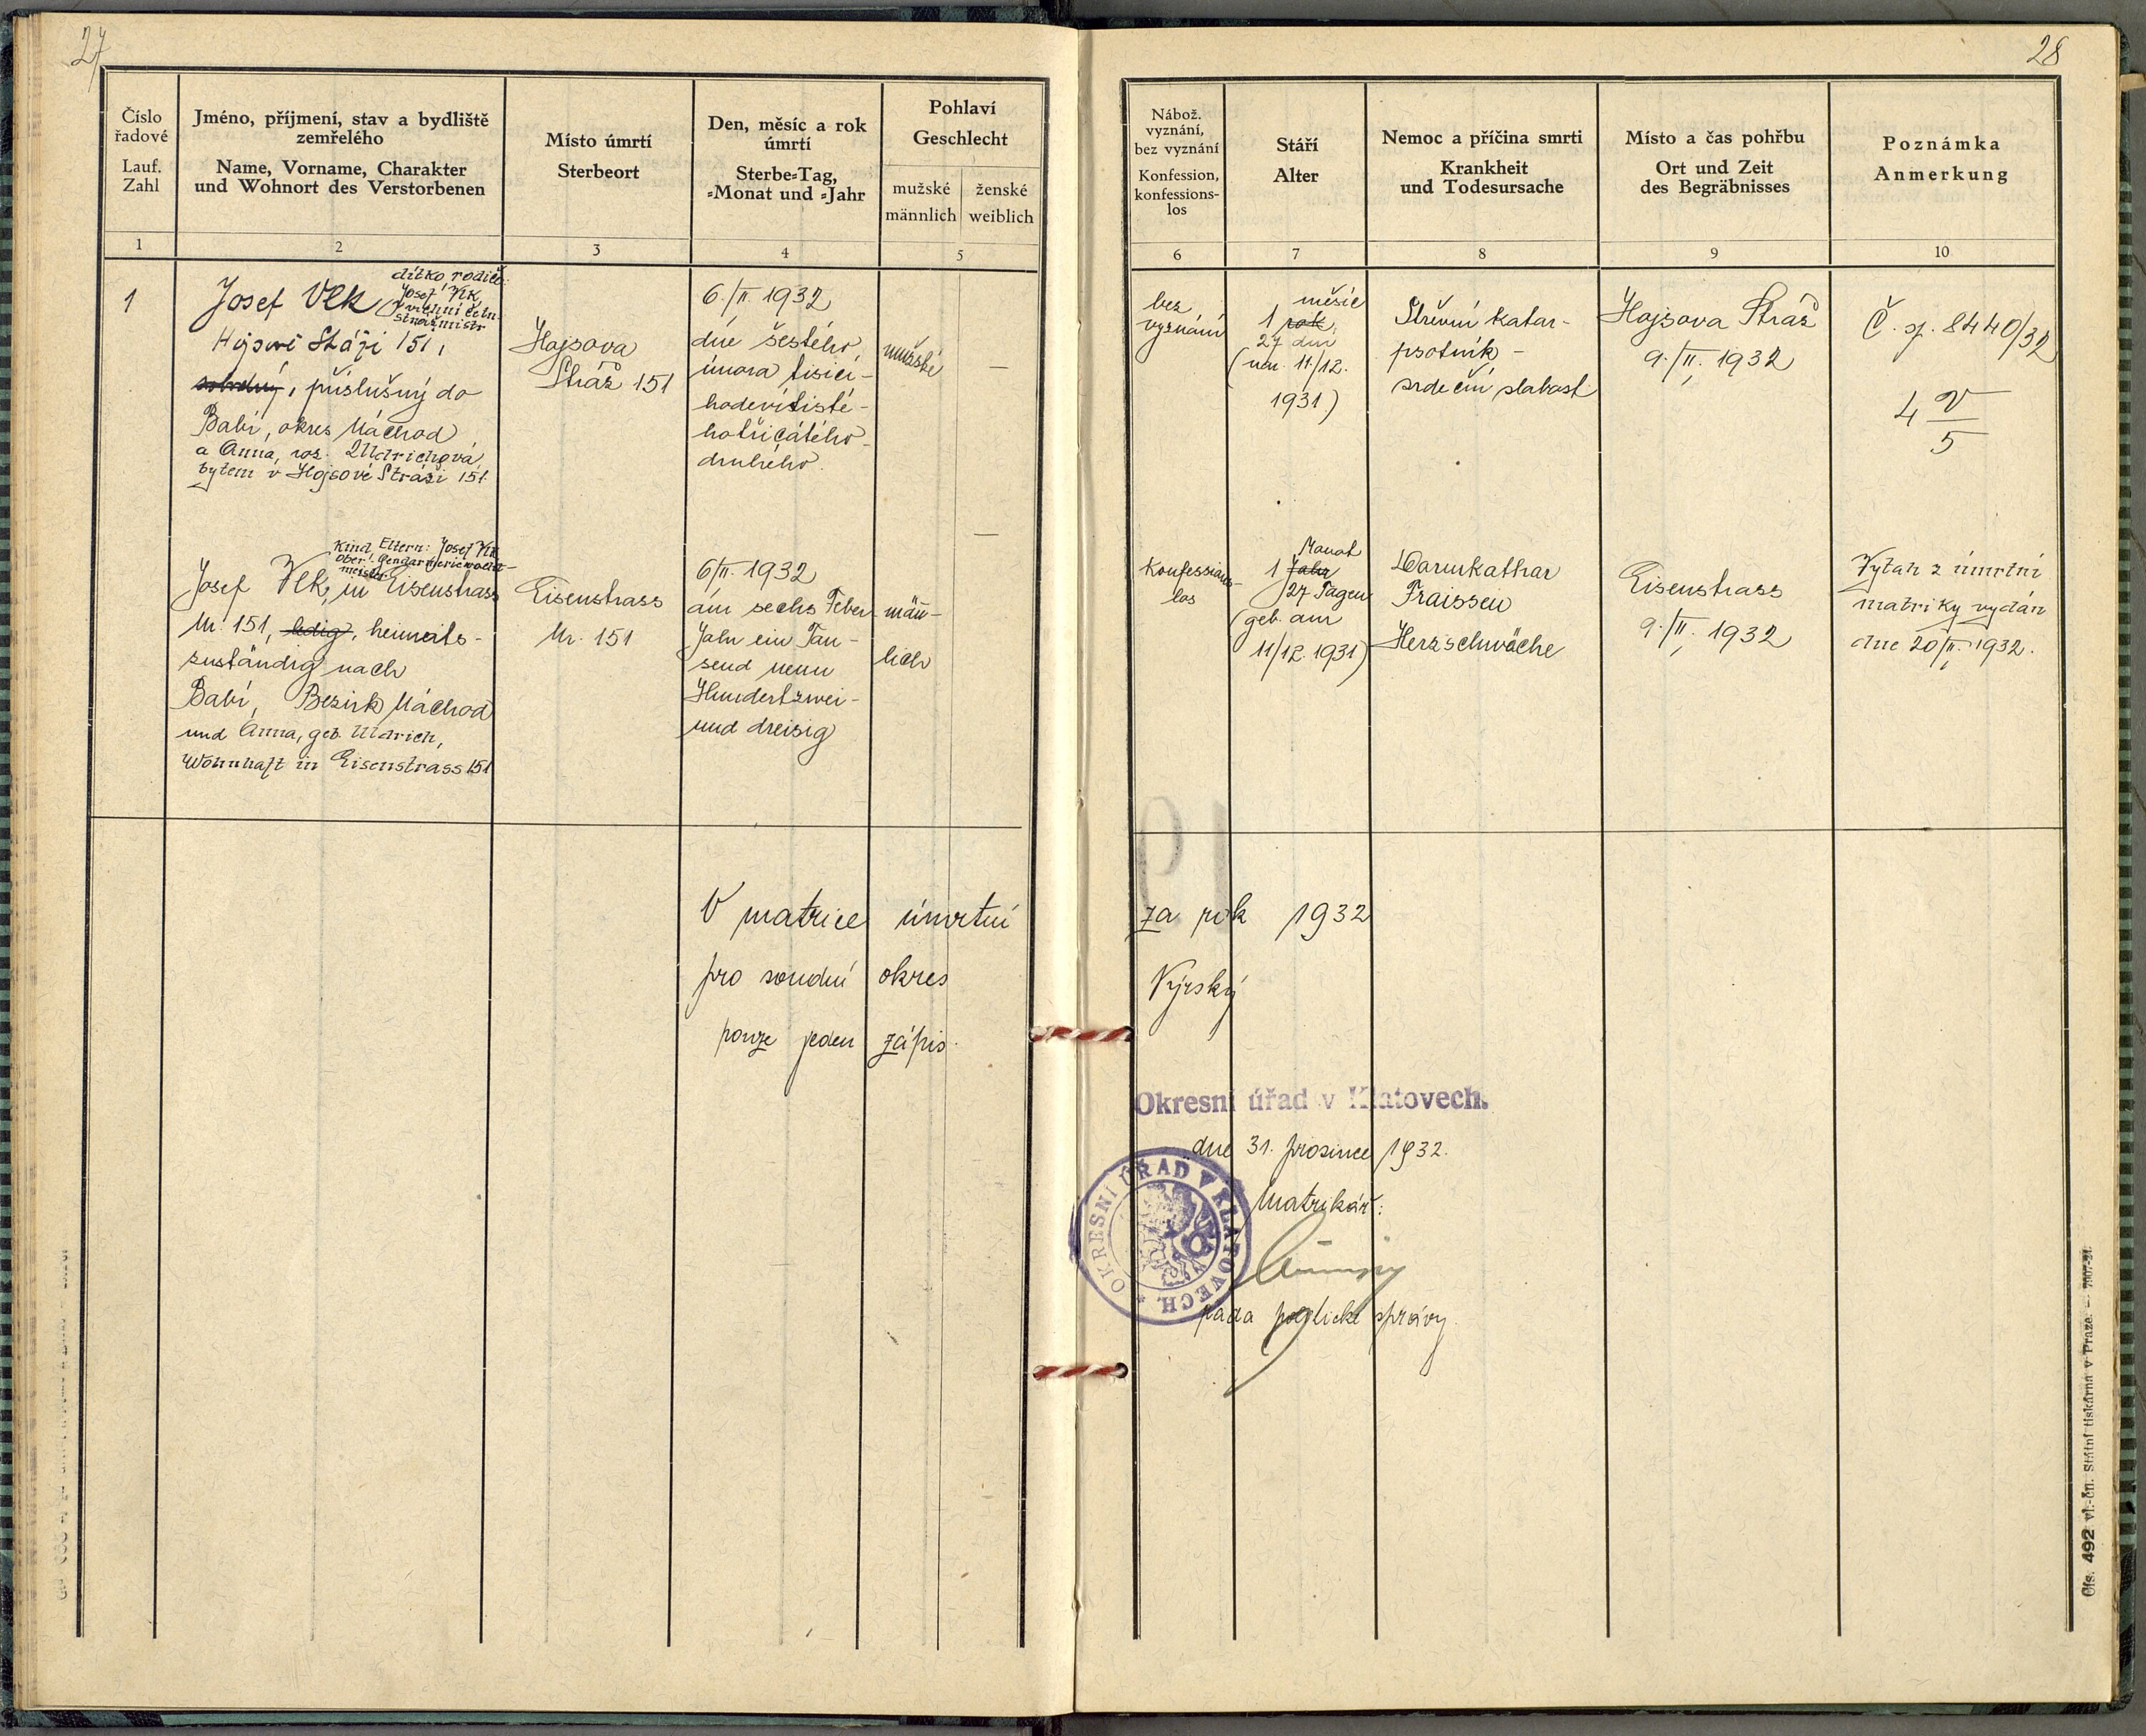 27
28
Číslo
řadové
Lauf.
Zahl
Jméno, příjmení, stav a bydliště
zemřelého
Name, Vorname, Charakter
und Wohnort des Verstorbenen
Místo úmrtí
Sterbeort
Den, měsíc a rok
úmrtí
Sterbe-Tag,
-Monat und -Jahr
Pohlaví
Geschlecht
mužské
männlich
ženské
weiblich
Nábož.
vyznání,
bez vyznání
Konfession,
konfessions-
los
Stáří
Alter
Nemoc a příčina smrti
Krankheit
und Todesursache
Místo a čas pohřbu
Ort und Zeit
des Begräbnisses
Poznámka
Anmerkung
1
2
3
4
5
6
7
8
9
10
1
dítko rodičů:
Josef Vlk,
vrchní četn.
strážmistr
Josef Vlk
151,
příslušný do
Babí, okres Náchod
a Anna, roz. Uldrichová
bytem v Hojsově Stráži 151.
Hojsova
Stráž 151
6./II. 1932
dne šestého
února tisící-
hodevítisté-
hotřicátého
druhého.
mužské
—
bez
vyznání
měsíc
1 rok,
27 dní
(nar. 11/12.
1931)
Střevní katar-
psotník -
srdeční slabost
Hojsova Stráž
9./II. 1932
Č. sp. 8440/32
4 V
5
Kind, Eltern: Josef Vlk
Ober. Gendarmeriewacht-
meister
Josef Vlk, in Eisenstrass
Nr. 151, ledig, heimats-
zuständig nach
Babí, Bezirk Náchod
und Anna, geb. Uldrich,
Wohnhaft in Eisenstrass 151
Eisenstrass
Nr. 151
6/II. 1932
am sechs Feber
Jahr ein Tau-
send neun
Hundertzwei-
und dreisig
män̄-
lich
—
Konfessions-
los
Monat
1 Jahr
27 Tagen
(geb. am
11/12. 1931)
Darmkathar
Fraissen
Herzschwäche
Eisenstrass
9./II. 1932
Výtah z úmrtní
matriky vydán
dne 20/II. 1932.
V matrice úmrtní za rok 1932
pro soudní okres Nýrský
pouze jeden zápis.
Okresní úřad v Klatovech.
dne 31. prosince 1932.
Matrikář:
OKRESNÍ ÚŘAD V KLATOVECH *
rada politické správy.
Čís. 492 vl.-čn. Státní tiskárna v Praze.